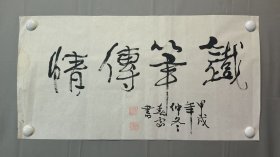 鐵筆傳情
甲戌
年仲冬
書